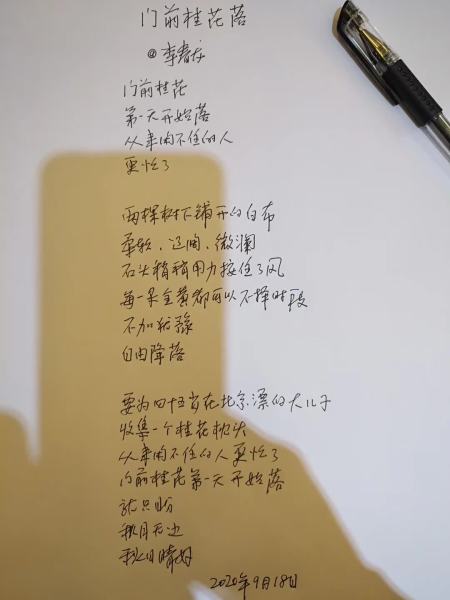 门前桂花落
@李春龙
门前桂花
第一天开始落
从来闲不住的人
更忙了
两棵树下铺开的白布
柔软、辽阔、微澜
石头稍稍用力按住了风
每一朵金黄都可以不择时段
不加犹豫
自由降落
要为四十五岁在北京漂的大儿子
收集一个桂花枕头
从来闲不住的人更忙了
门前桂花第一天开始落
就只盼
秋月无边
秋日晴好
2020年9月18日